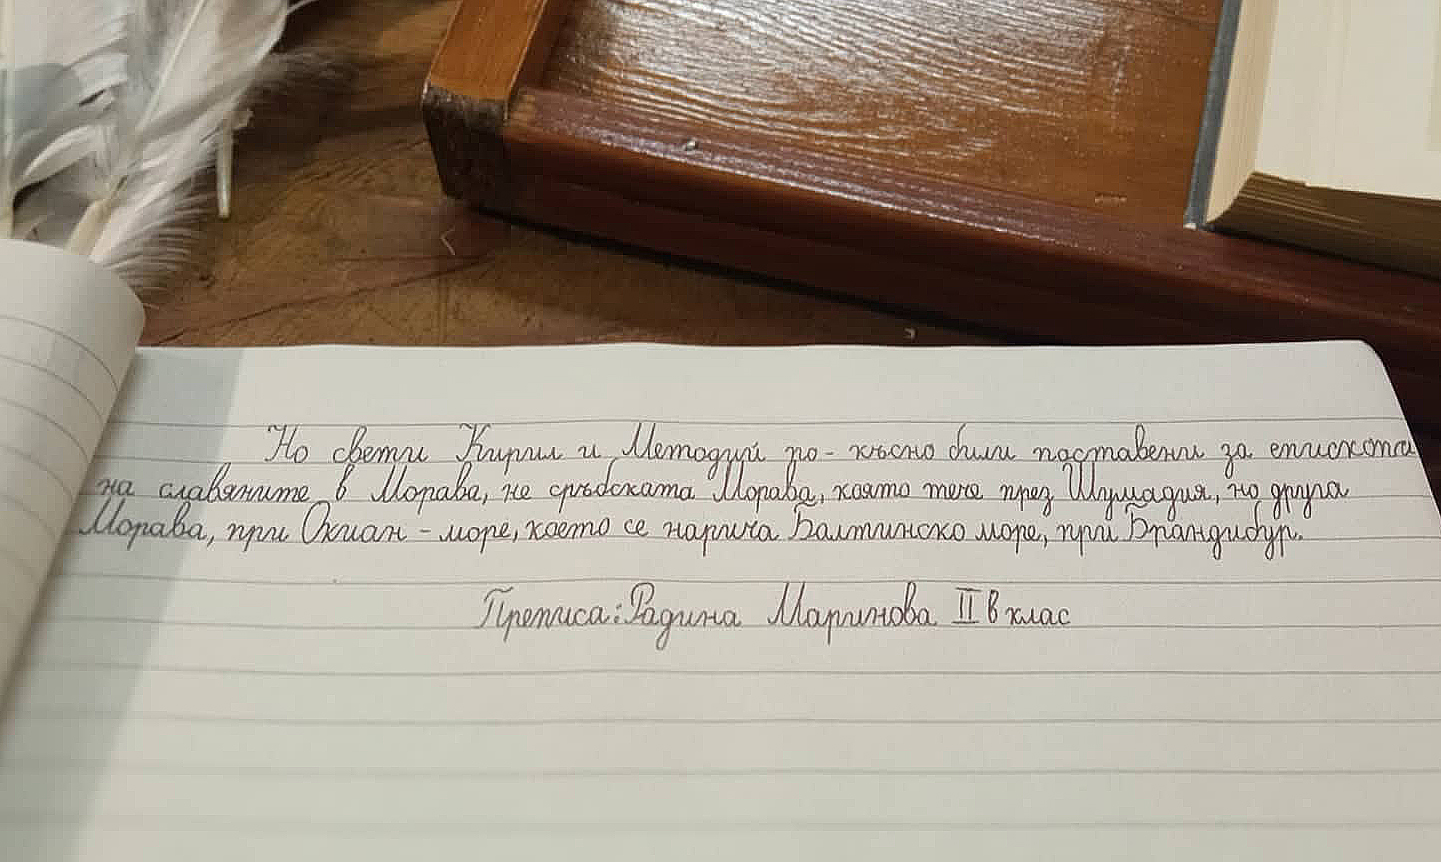 Но свети Кирил и Методий по - късно били поставени за епископи
на славяните в Морава, не сръбската Морава, която тече през Шумадия, но друга
Морава, при Окиан - море, което се нарича Балтинско море, при Брандибур.
Преписа: Радина Маринова II в клас